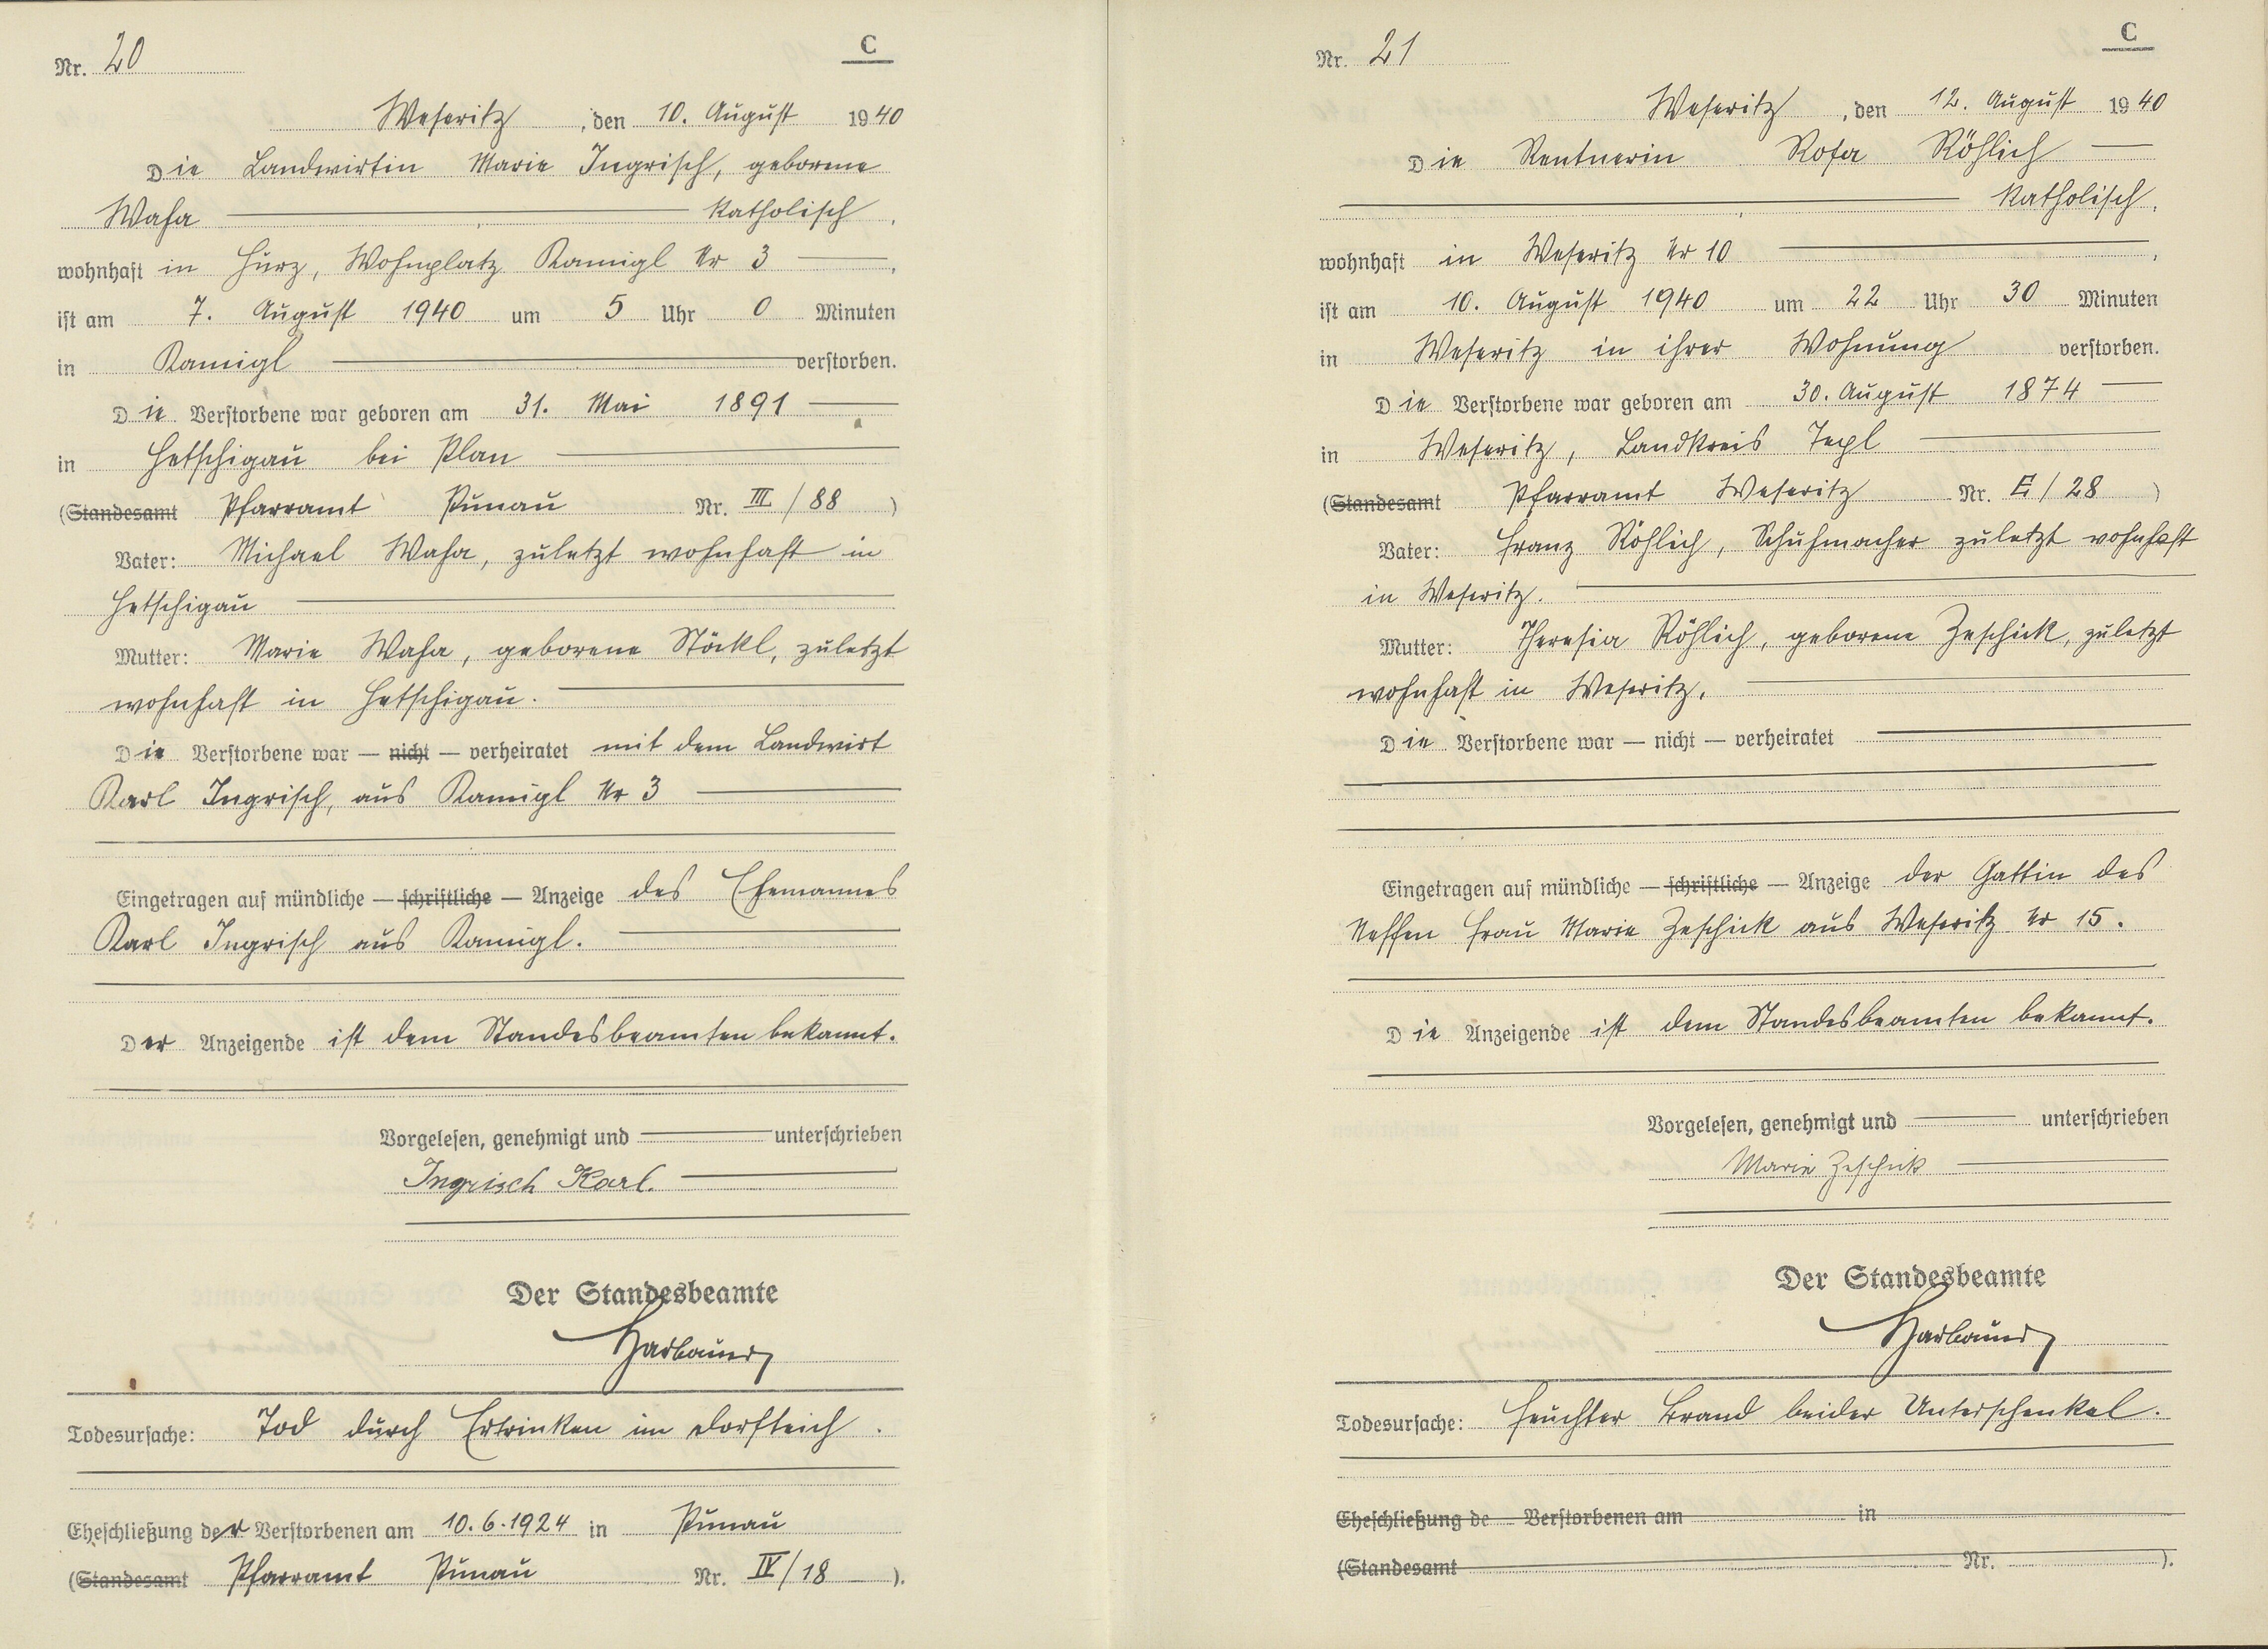 Nr. 20
C
Weseritz, den 10. August 1940
Die Landwirtin Marie Ingrisch, geborene
Wasa katholisch,
wohnhaft in Hurz, Wohnplatz Ramigl Nr 3,
ist am 7. August 1940 um 5 Uhr 0 Minuten
in Ramigl verstorben.
Die Verstorbene war geboren am 31. Mai 1891
in Hetschigau bei Plan
(Standesamt Pfarramt Punau Nr. III/88)
Vater: Michael Wasa, zuletzt wohnhaft in
Hetschigau
Mutter: Marie Wasa, geborene Stöckl, zuletzt
wohnhaft in Hetschigau.
Die Verstorbene war — nicht — verheiratet mit dem Landwirt
Karl Ingrisch, aus Ramigl Nr 3
Eingetragen auf mündliche — schriftliche — Anzeige des Ehemannes
Karl Ingrisch aus Ramigl.
Der Anzeigende ist dem Standesbeamten bekannt.
Vorgelesen, genehmigt und unterschrieben
Ingrisch Karl.
Der Standesbeamte
Todesursache: Tod durch Ertrinken im Dorfteich.
Eheschließung der Verstorbenen am 10.6.1924 in Punau
(Standesamt Pfarramt Punau Nr. IV/18).
Nr. 21
C
Weseritz, den 12. August 1940
Die Rentnerin Rosa Röhlich
katholisch,
wohnhaft in Weseritz Nr 10,
ist am 10. August 1940 um 22 Uhr 30 Minuten
in Weseritz in ihrer Wohnung verstorben.
Die Verstorbene war geboren am 30. August 1874
in Weseritz, Landkreis Tepl
(Standesamt Pfarramt Weseritz Nr. E/28)
Vater: Franz Röhlich, Schuhmacher zuletzt wohnhaft
in Weseritz.
Mutter: Theresia Röhlich, geborene Zeschick, zuletzt
wohnhaft in Weseritz.
Die Verstorbene war — nicht — verheiratet
Eingetragen auf mündliche — schriftliche — Anzeige der Gattin des
Neffen Frau Marie Zeschick aus Weseritz Nr 15.
Die Anzeigende ist dem Standesbeamten bekannt.
Vorgelesen, genehmigt und unterschrieben
Marie Zeschick
Der Standesbeamte
Todesursache: Feuchter Brand beider Unterschenkel.
Eheschließung de Verstorbenen am in
(Standesamt Nr. ).